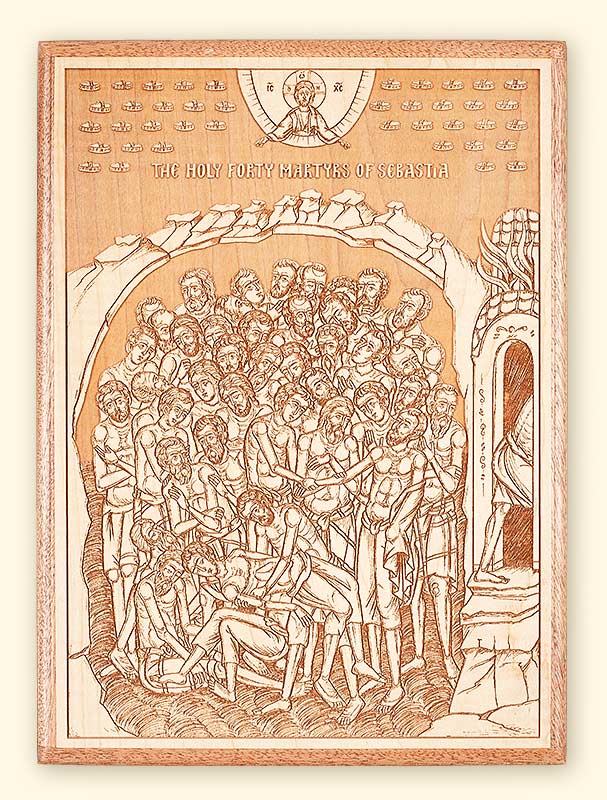 IC XC
THE HOLY FORTY MARTYRS OF SEBASTIA